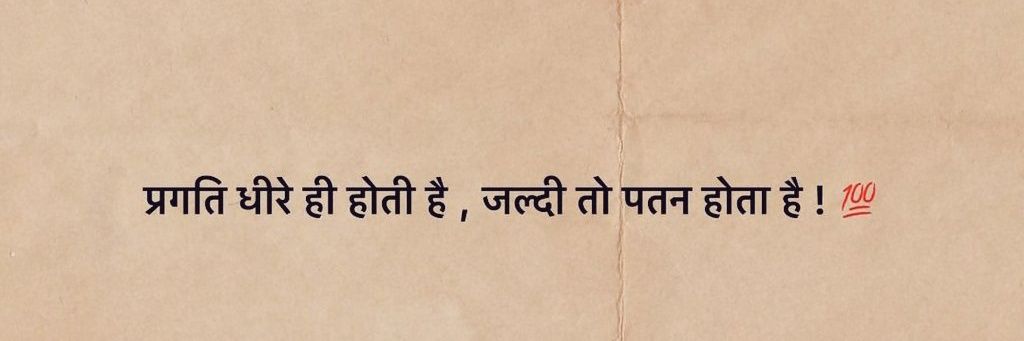 प्रगति धीरे ही होती है , जल्दी तो पतन होता है ! 💯